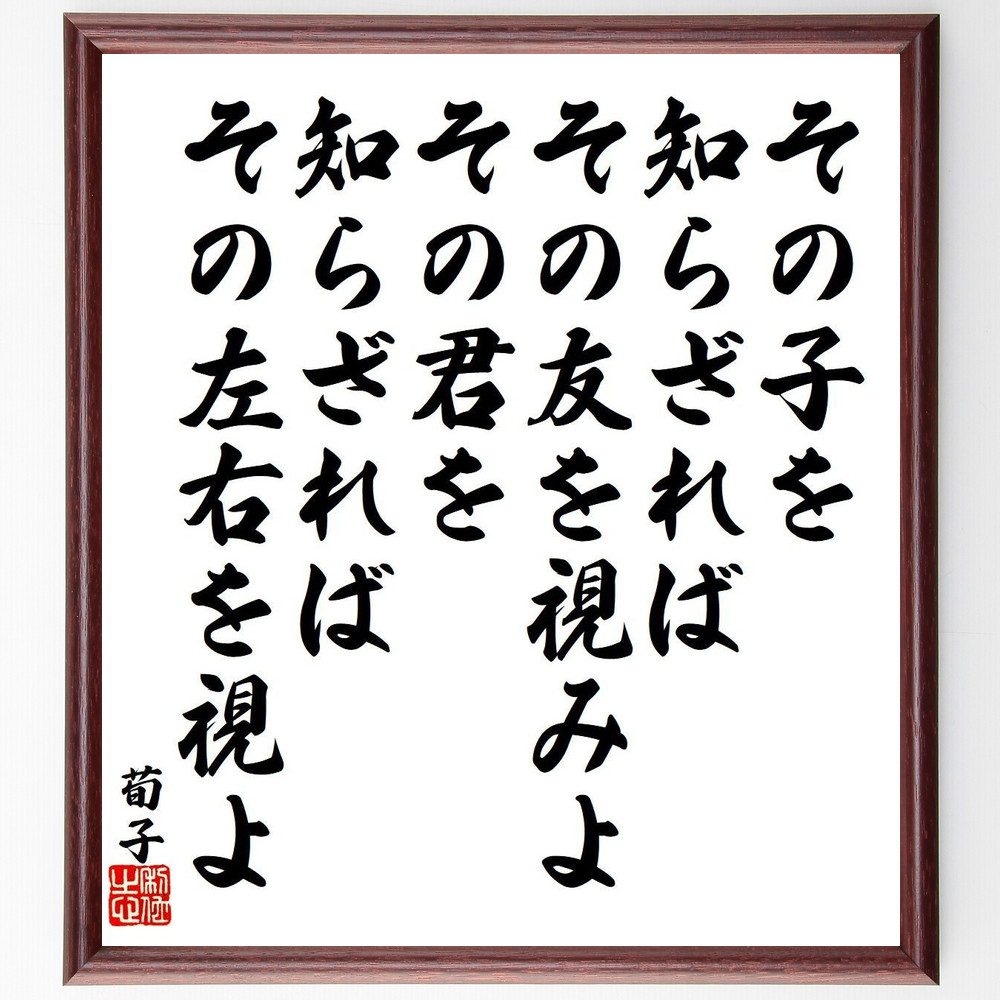 その子を
知らざれば
その友を視みよ
その君を
知らざれば
その左右を視よ
荀子